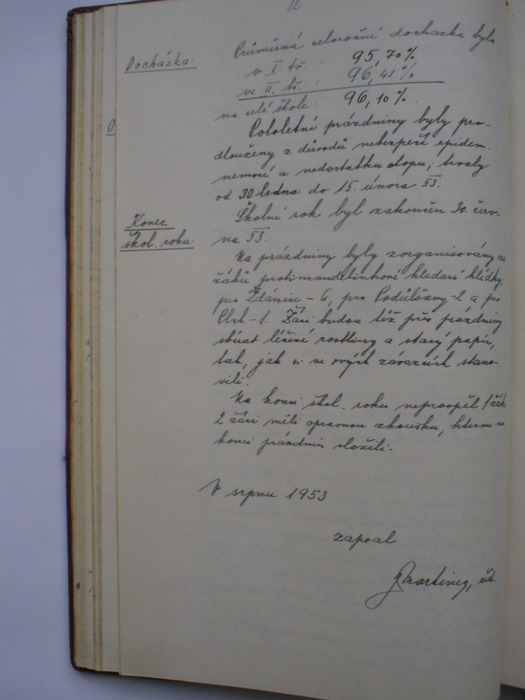 12
Docházka:
Průměrná celoroční docházka byla
v I. tř. 95,70%
ve II. tř. 96,41%
na celé škole 96,10%.
Pololetní prázdniny byly pro-
dlouženy z důvodů nebezpečí epidem.
nemocí a nedostatku otopu; trvaly
od 30. ledna do 15. února 53.
Konec
škol. roku:
Školní rok byl zakončen 30. červ-
na 53.
Na prázdniny byly zorganisovány ze
žáků protimandelinkové hledací hlídky,
pro Ždánice - 6, pro - 2 a pro
- 1. Žáci budou též přes prázdniny
sbírat léčivé rostliny a starý papír,
tak, jak si ve svých závazcích stano-
vili.
Na konci škol. roku neprospěl 1 žák
2 žáci měli opravnou zkoušku, kterou na
konci prázdnin složili.
V srpnu 1953
zapsal
Martinec,